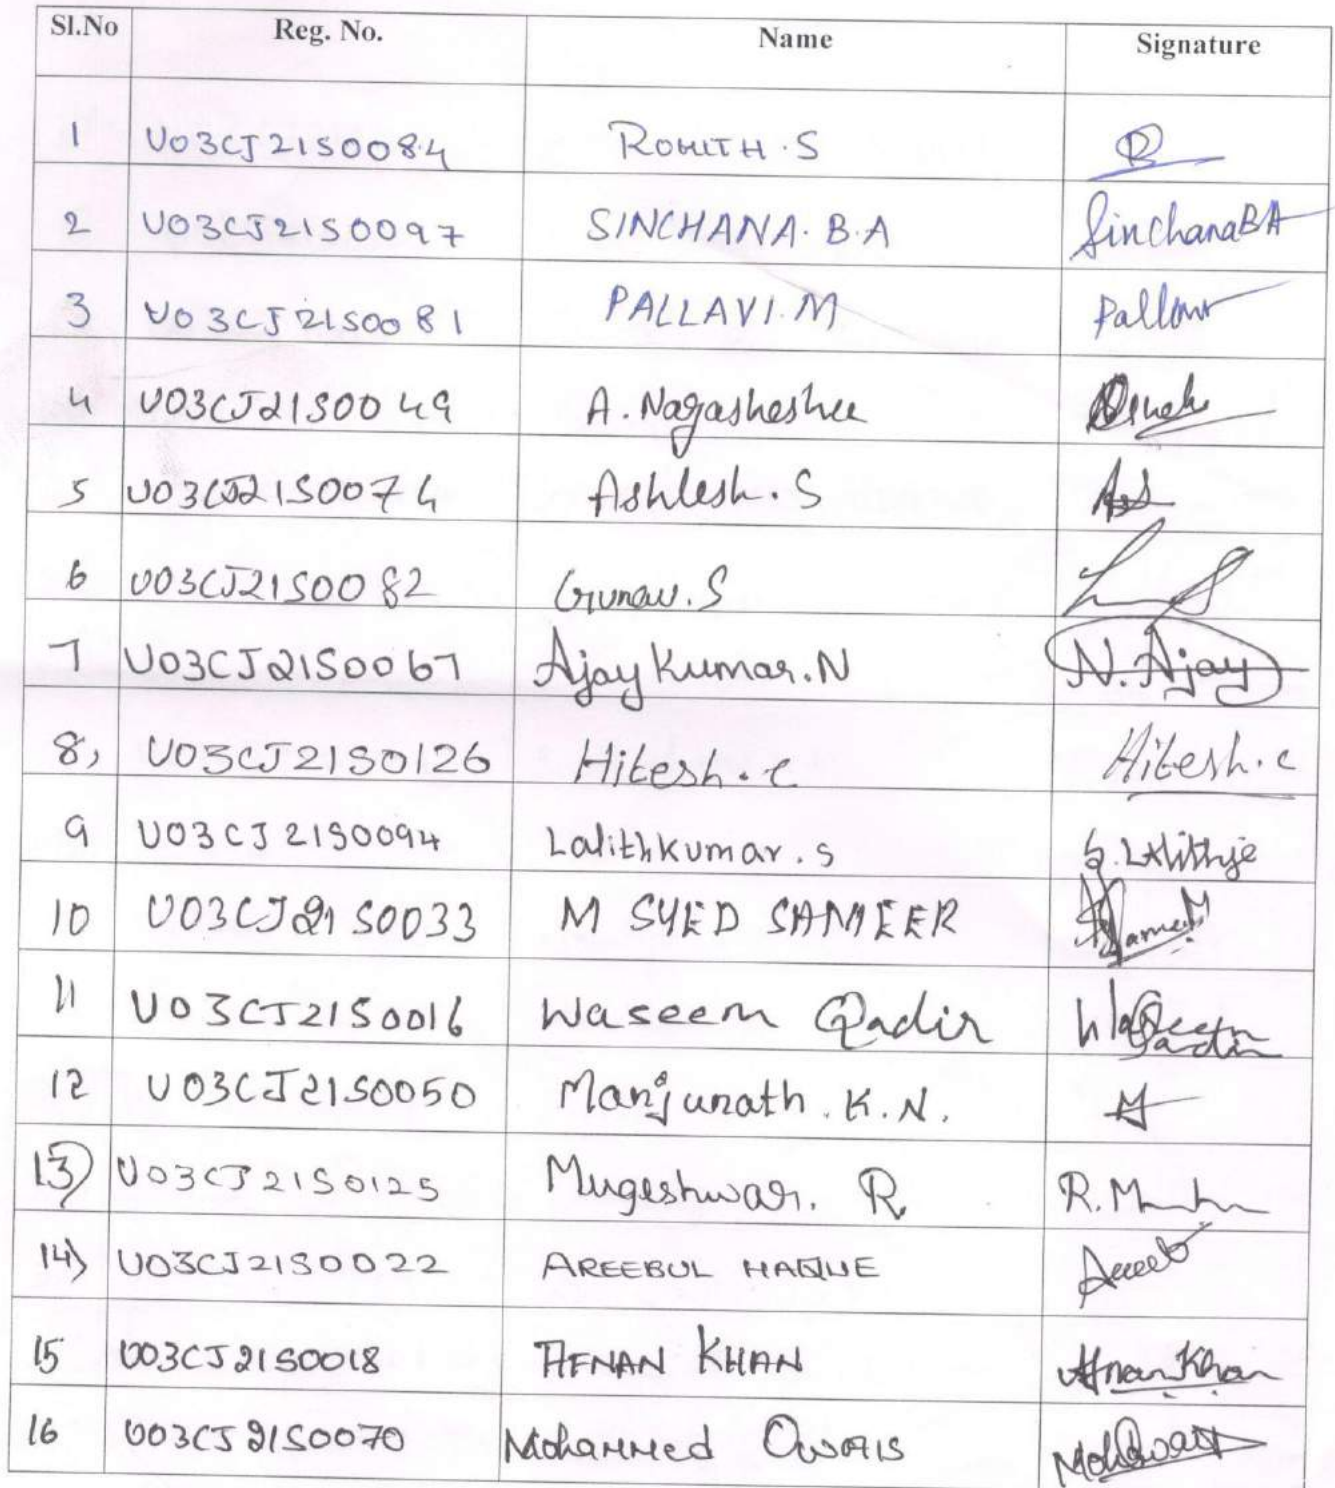 Sl.No Reg. No. Name Signature
1 U03CJ21S0084 ROHITH.S
2 U03CJ21S0097 SINCHANA.B.A SinchanaBA
3 U03CJ21S0081 PALLAVI.M Pallavi
4 U03CJ21S0049 A.Nagasheshee
5 U03CJ21S0074 Ashlesh.S
6 U03CJ21S0082 S
7 U03CJ21S0067 Ajay Kumar.N N.Ajay
8, U03CJ21S0126 Hitesh.c Hitesh.c
9 U03CJ21S0094 Lalithkumar.s
10 U03CJ21S0033 M SYED SAMEER
11 U03CJ21S0016 Waseem Qadir Waseem Qadir
12 U03CJ21S0050 Manjunath.K.N. M
13) U03CJ21S0125 Mugeshwar. R R.M
14) U03CJ21S0022 AREEBUL HAQUE Areeb
15 U03CJ21S0018 AFNAN KHAN Afnan Khan
16 U03CJ21S0070 Mohammed OWAIS